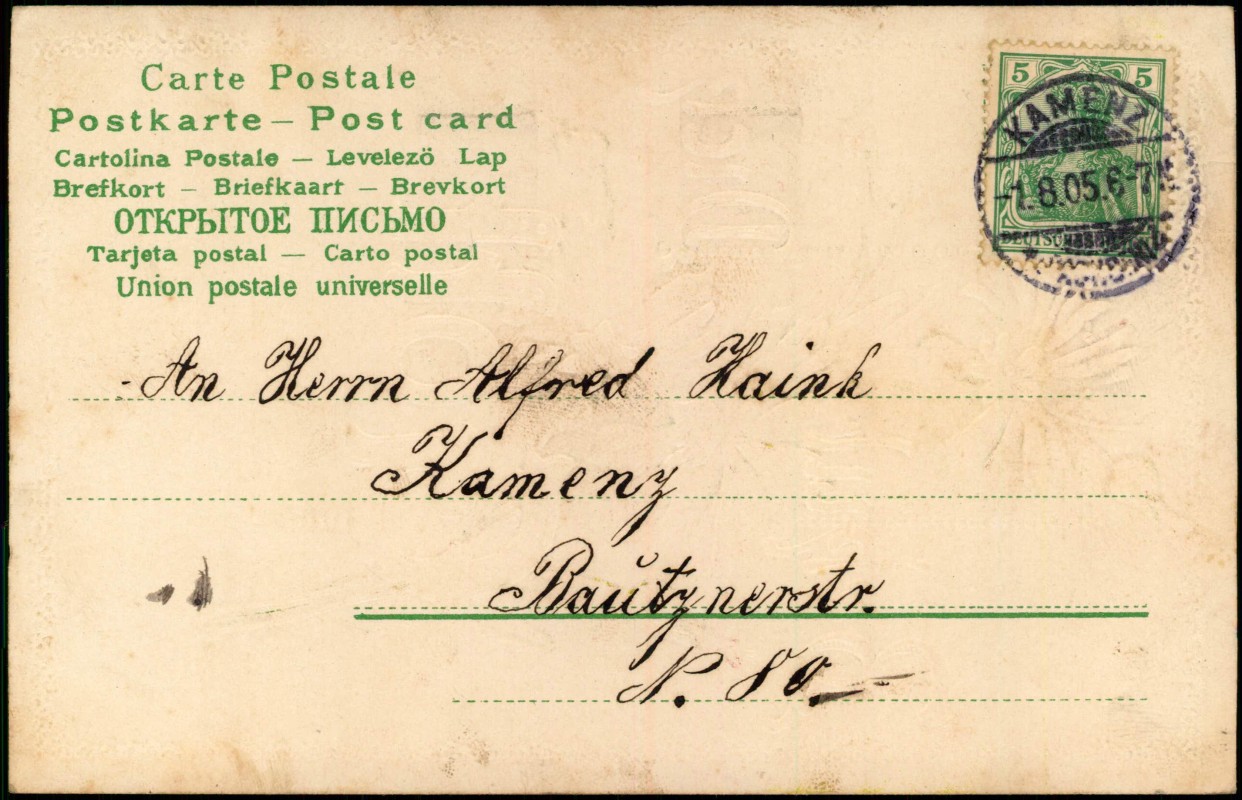 Carte Postale
Postkarte – Post card
Cartolina Postale – Levelező Lap
Brefkort – Briefkaart – Brevkort
ОТКРЫТОЕ ПИСЬМО
Tarjeta postal — Carto postal
Union postale universelle
5 5
KAMENZ
-1.8.05.6-7
An Herrn Alfred Haink
Kamenz
Bautznerstr.
N. 80.